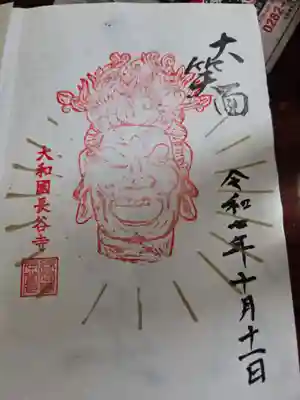 大笑面
令和七年十月十一日
大和國長谷寺
0282